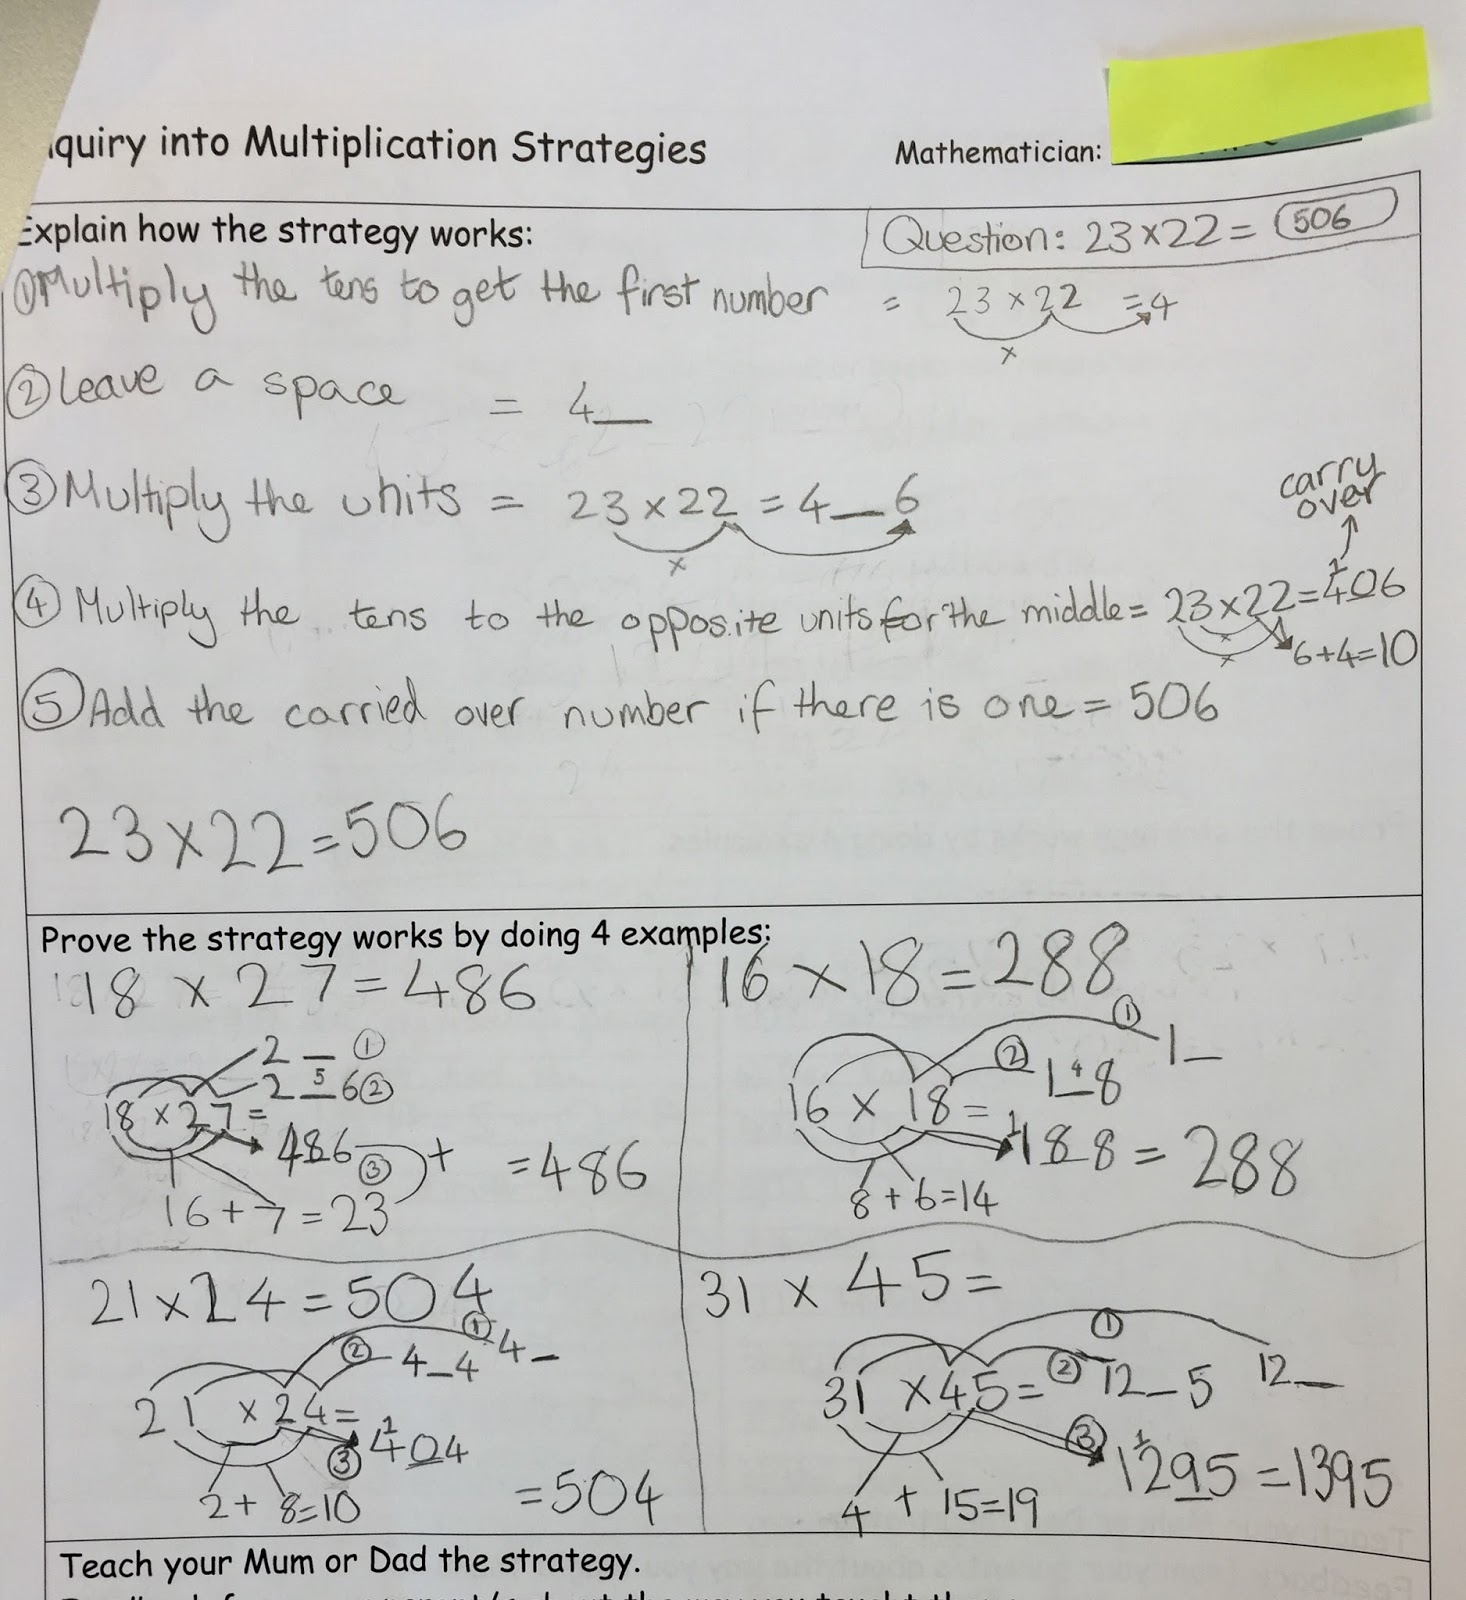 quiry into Multiplication Strategies
Mathematician:
Explain how the strategy works:
Question: 23 × 22 = 506
① Multiply the tens to get the first number = 23 × 22 = 4
×
② Leave a space = 4_
③ Multiply the units = 23 × 22 = 4_6
×
carry over
④ Multiply the tens to the opposite units for the middle = 23 × 22 = ¹406
× ×
6+4=10
⑤ Add the carried over number if there is one = 506
23 × 22 = 506
Prove the strategy works by doing 4 examples:
18 × 27 = 486
2 _ ①
2 5 6 ②
18 × 27 =
486 ③ +
16 + 7 = 23
= 486
16 × 18 = 288
① 1_
② 1 4 8
16 × 18 =
¹188 = 288
8 + 6 = 14
21 × 24 = 504
① 4_
② 4_4
21 × 24 =
③ 4¹04
2 + 8 = 10
= 504
31 × 45 =
① 12_
② 12_5
31 × 45 =
③ 1¹295 = 1395
4 + 15 = 19
Teach your Mum or Dad the strategy.